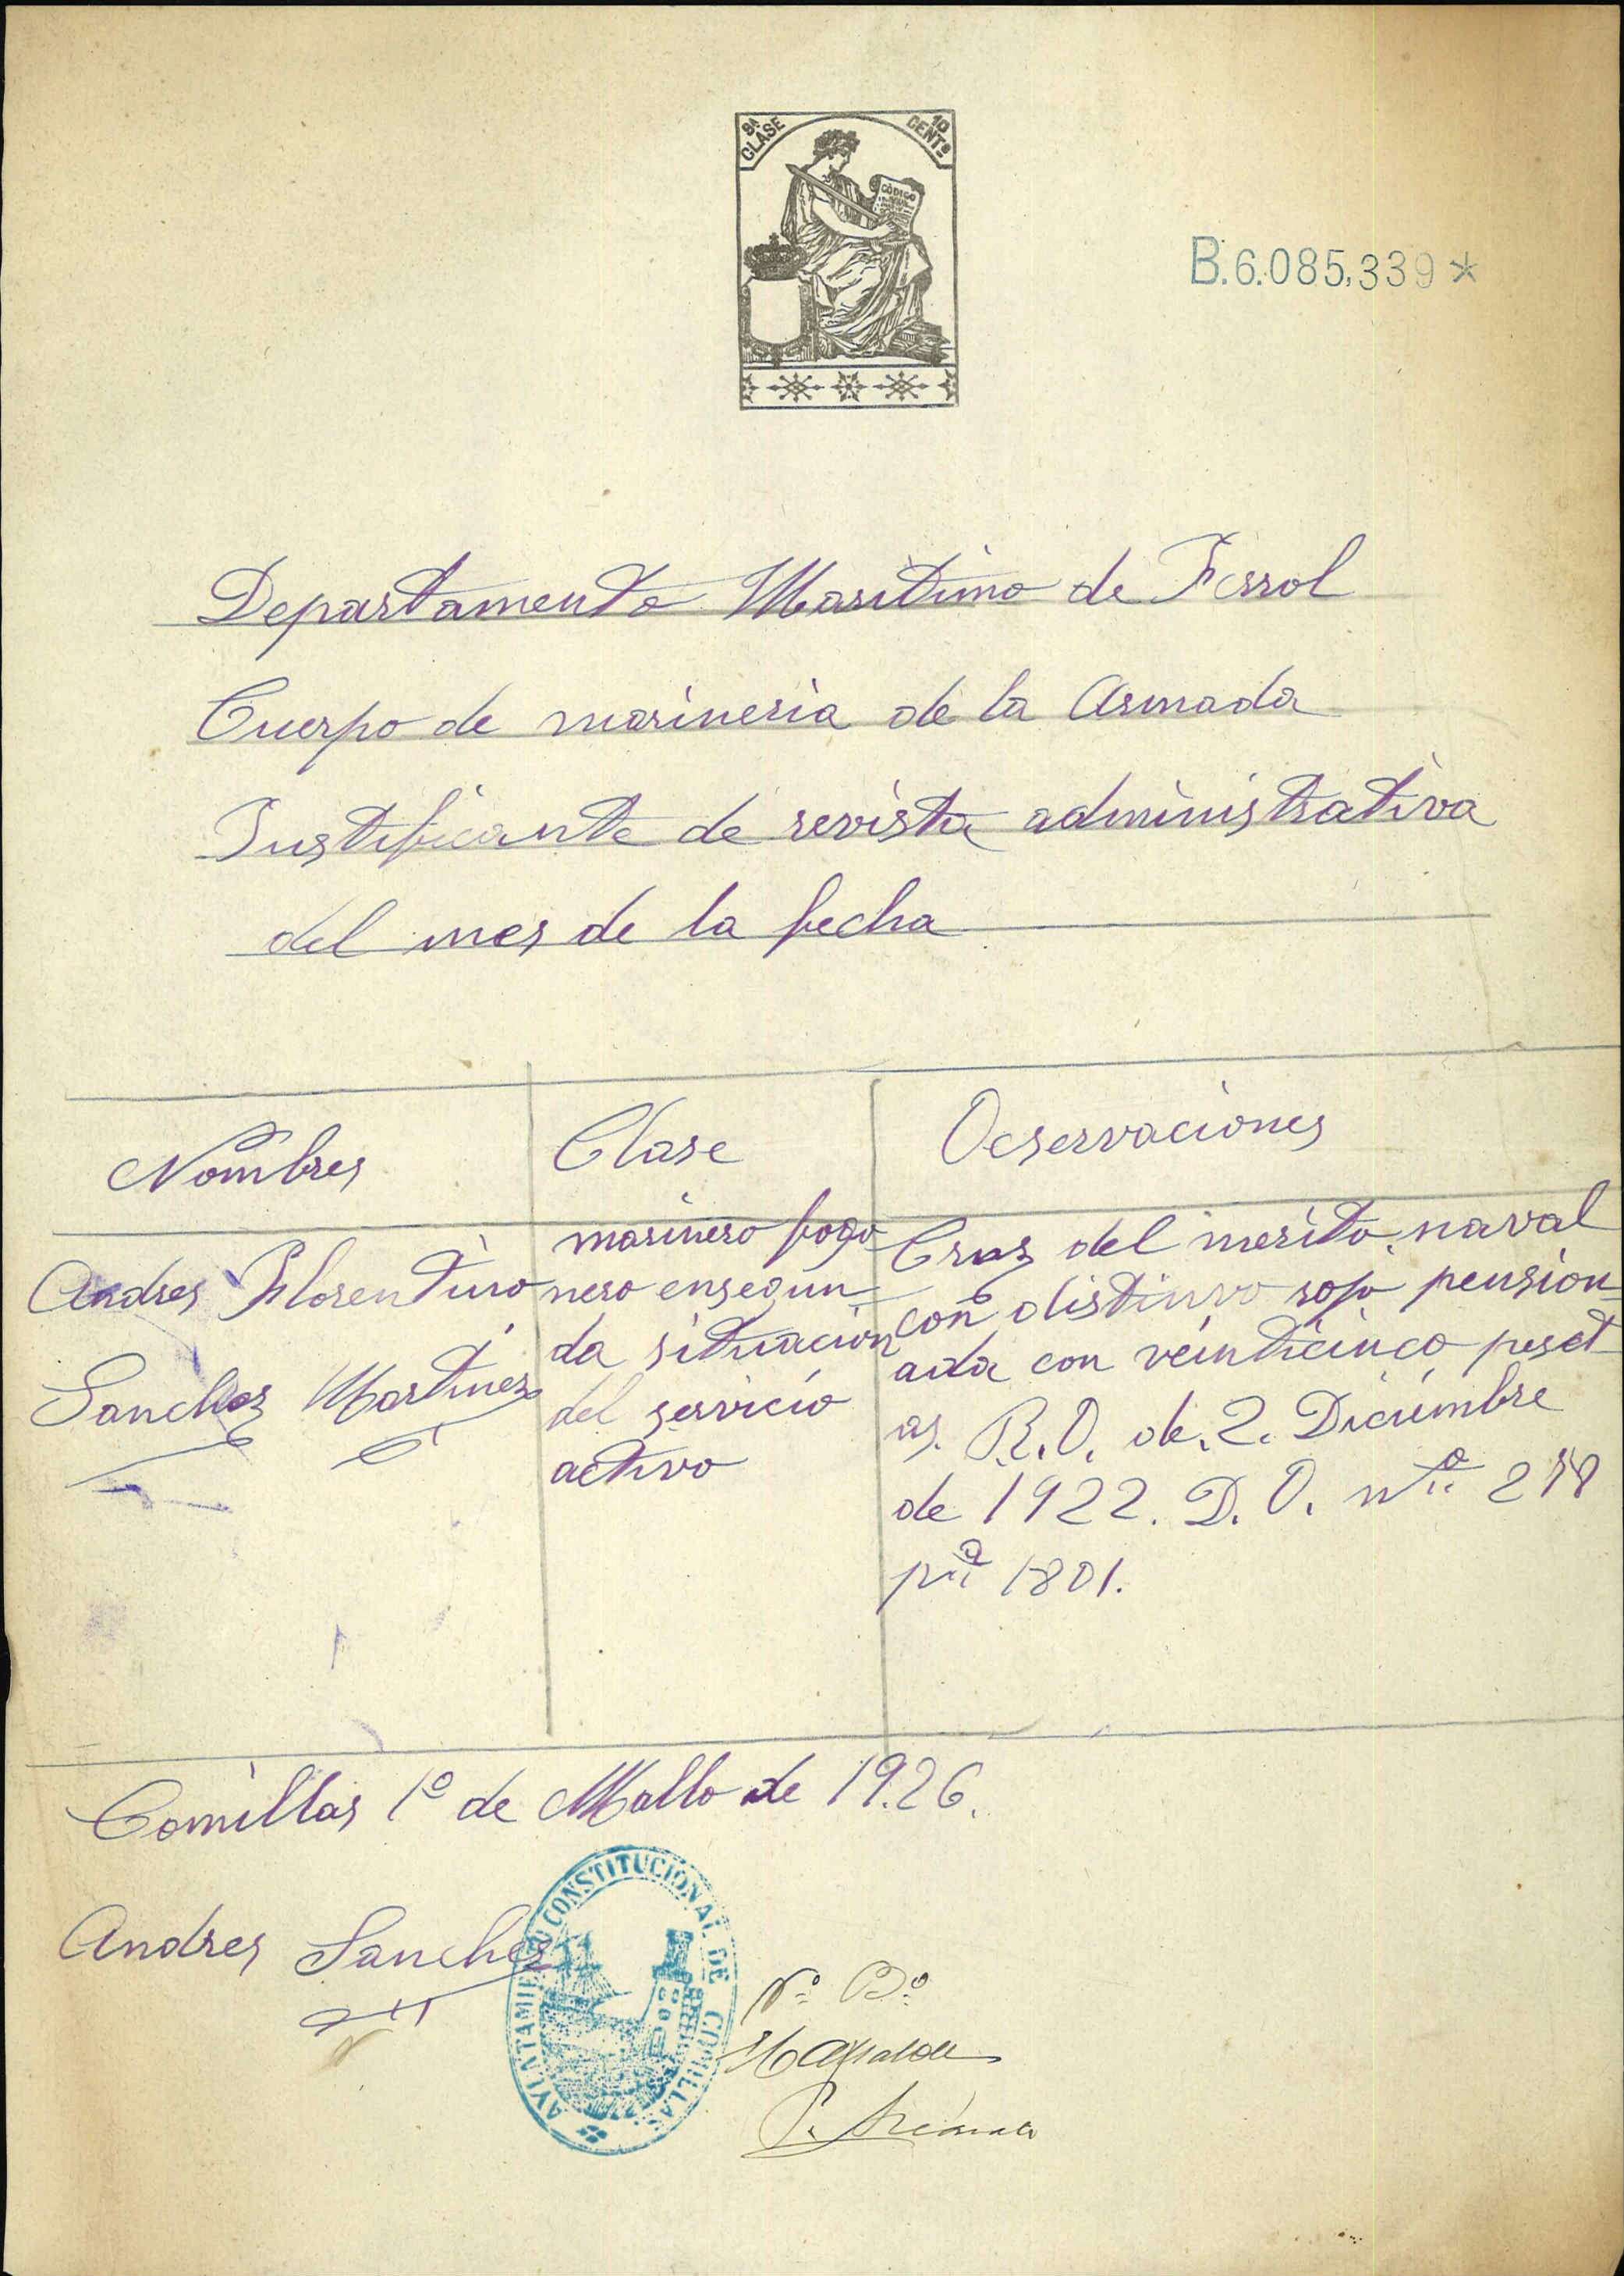 8ª CLASE
10 CENTS
CÓDIGO
B.6.085,339*
Departamento Maritimo de Ferrol
Cuerpo de marineria de la Armada
Justificante de revista administrativa
del mes de la fecha
Nombres
Clase
Ocservaciones
Andres Florentino
Sanchez Martinez
marinero fogo
nero ensegun
da situacion
del servicio
activo
Cruz del merito naval
con distinvo rojo pension
ada con veinticinco peset
as. R.O. de. 2. Diciembre
de 1922. D. O. nº 278
pª 1801.
Comillas 1º de Mallo de 19.26.
Andres Sanchez
AYUNTAMIENTO CONSTITUCIONAL DE COMILLAS
Vº Bº